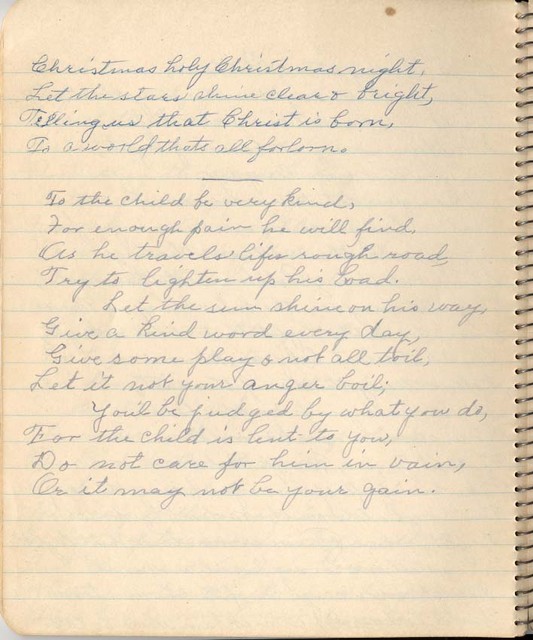 Christmas holy Christmas night,
Let the stars shine clear & bright,
Telling us that Christ is born,
To a world thats all forlorn.
To the child be very kind,
For enough pain he will find,
As he travels lifes rough road,
Try to lighten up his load.
Let the sun shine on his way,
Give a kind word every day,
Give some play & not all toil,
Let it not your anger boil;
You'll be judged by what you do,
For the child is lent to you,
Do not care for him in vain,
Or it may not be your gain.